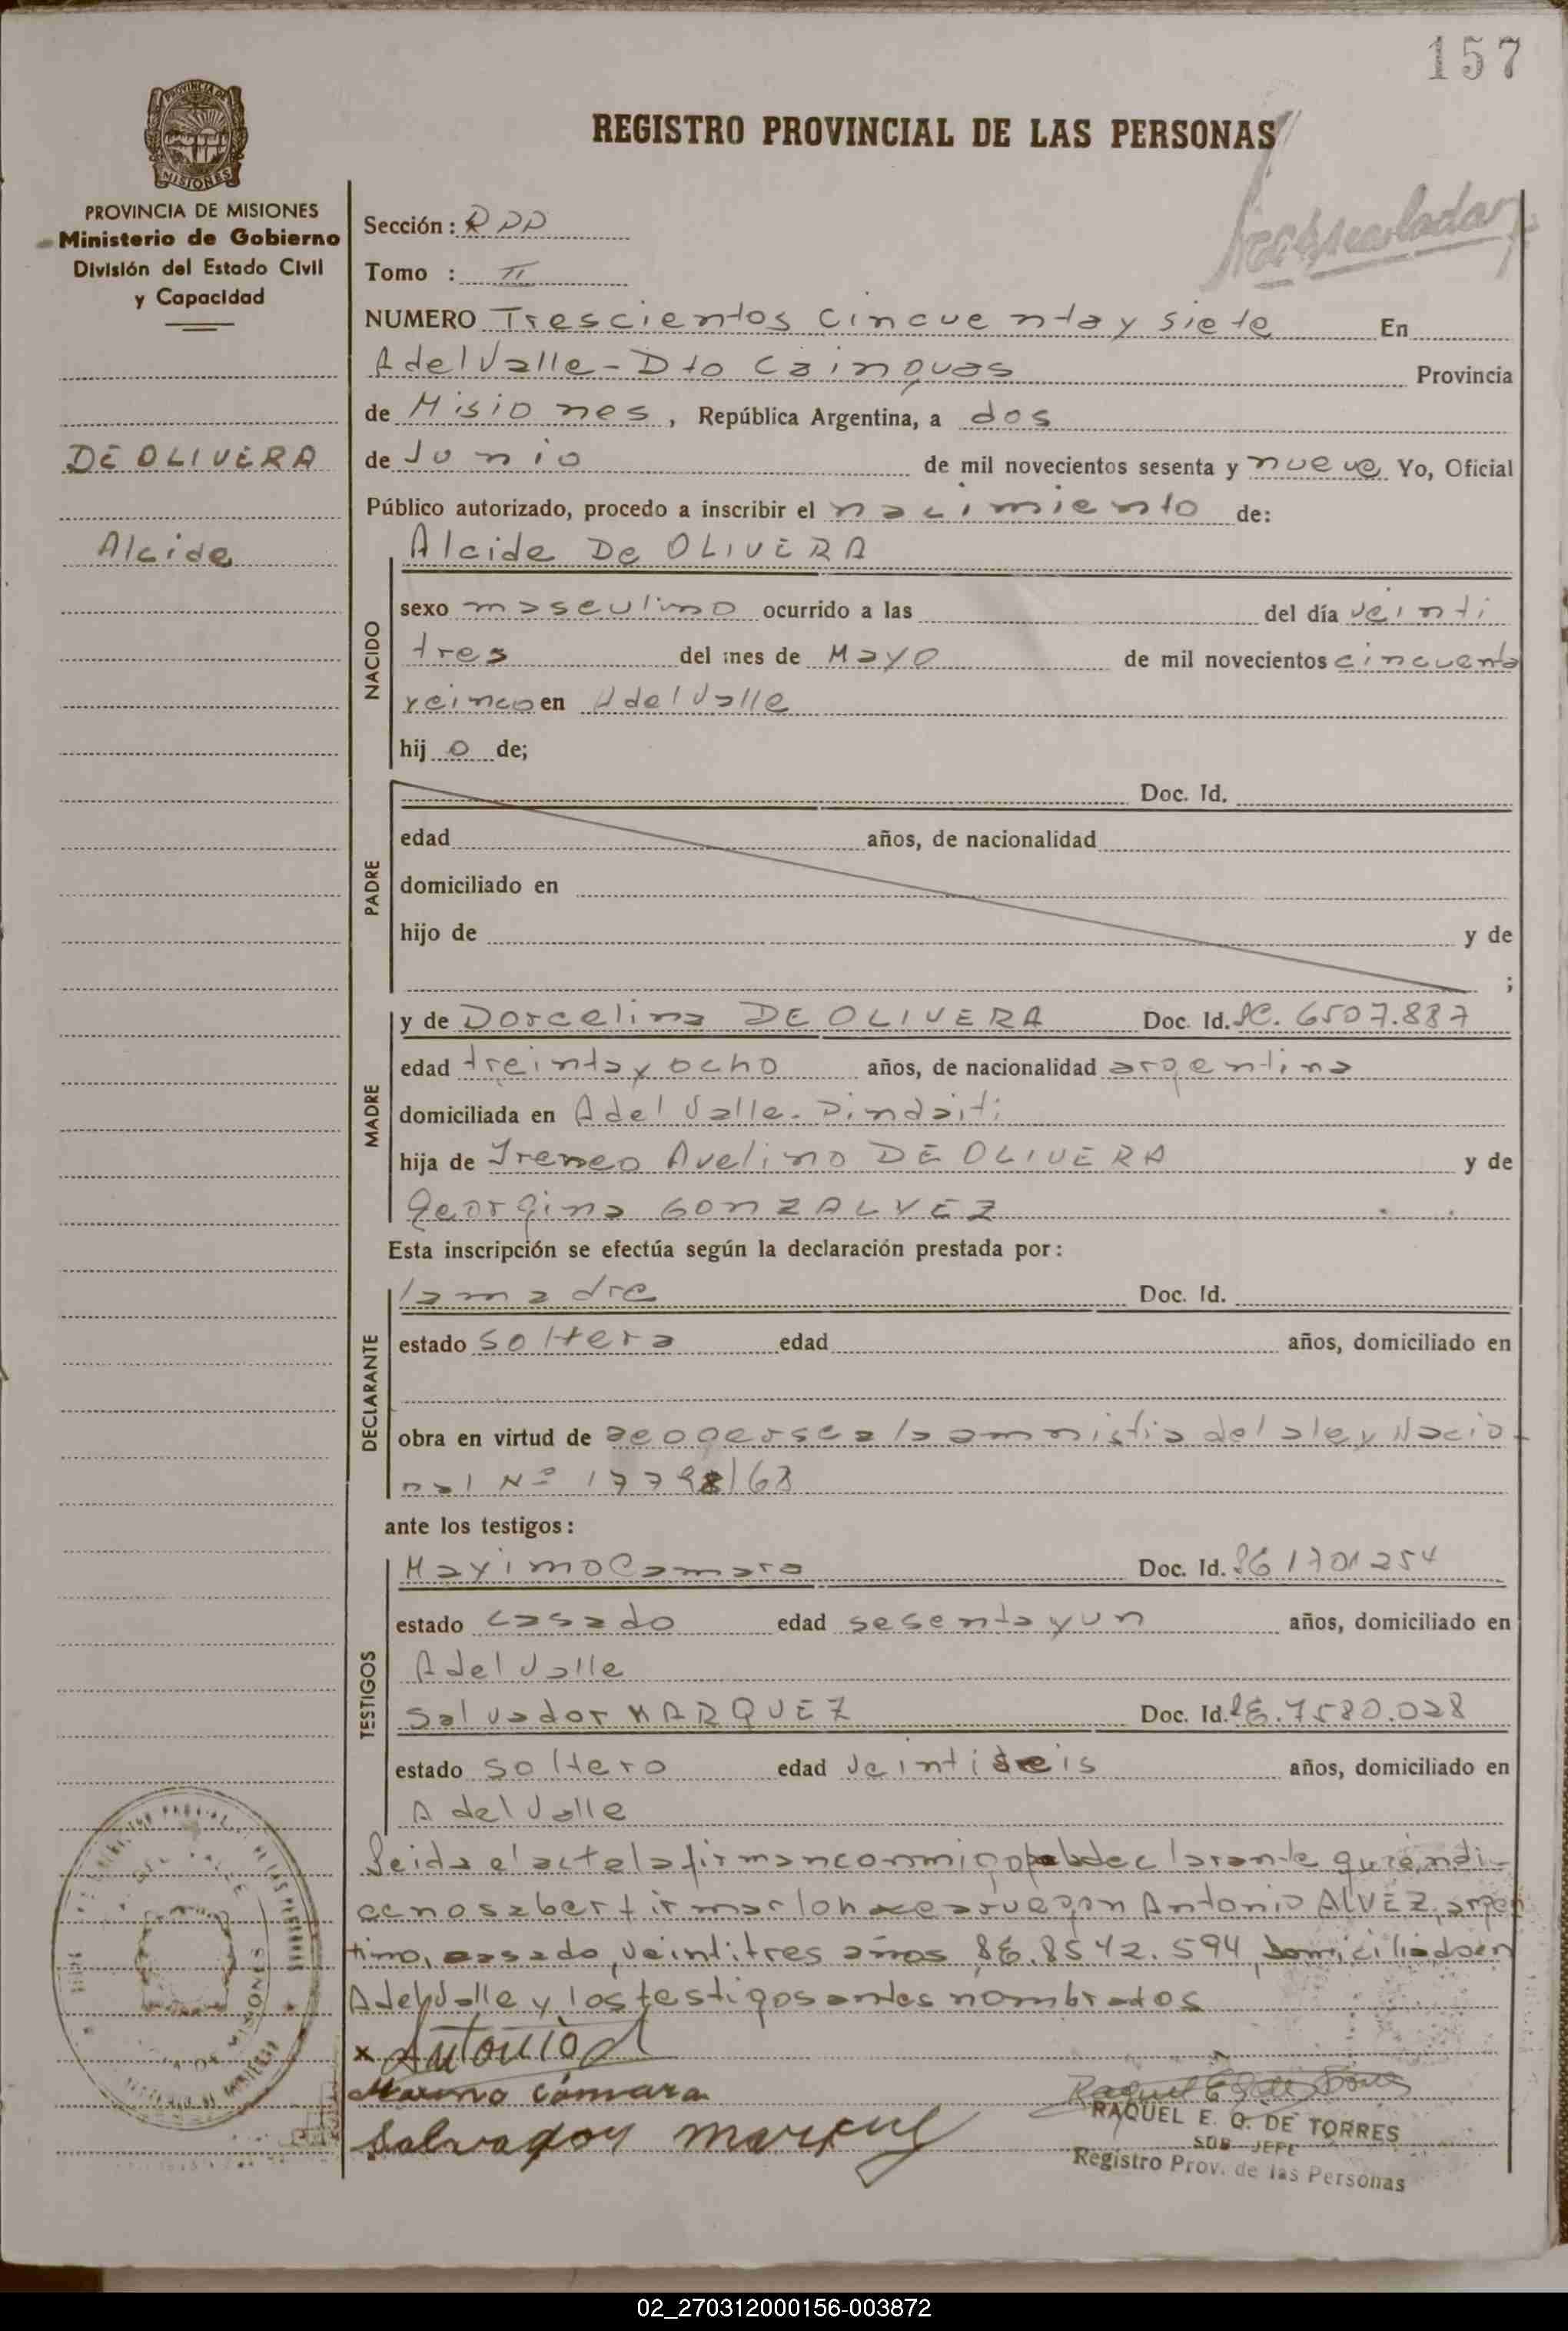 157
REGISTRO PROVINCIAL DE LAS PERSONAS
PROVINCIA DE MISIONES
Ministerio de Gobierno
División del Estado Civil
y Capacidad
DE OLIVERA
Alcide
Sección:
Tomo : II
NUMERO Trescientos cincuenta y siete En
A del Valle - Dto Cainguas Provincia
de Misiones, República Argentina, a dos
de Junio de mil novecientos sesenta y nueve Yo, Oficial
Público autorizado, procedo a inscribir el nacimiento de:
Alcide De OLIVERA
NACIDO
sexo masculino ocurrido a las del día veinti
tres del mes de Mayo de mil novecientos cincuenta
y cinco en A del Valle
hij o de;
PADRE
Doc. Id.
edad años, de nacionalidad
domiciliado en
hijo de y de
;
MADRE
y de Dorcelina DE OLIVERA Doc. Id. 6507.887
edad treinta y ocho años, de nacionalidad argentina
domiciliada en A del Valle - Pindaiti
hija de Ireneo Avelino DE OLIVERA y de
Georgina GONZALVEZ
Esta inscripción se efectúa según la declaración prestada por:
DECLARANTE
la madre Doc. Id.
estado soltera edad años, domiciliado en
obra en virtud de acogerse a la amnistia de la ley Nacio-
nal Nº
ante los testigos:
TESTIGOS
Maximo Camara Doc. Id.
estado casado edad sesenta y un años, domiciliado en
A del Valle
Salvador MARQUEZ Doc. Id. 7580.028
estado soltero edad veintiseis años, domiciliado en
A del Valle
Leida el acta la firman conmigo declarante quien indi-
ca no saber firmar lo hace a ruego n Antonio ALVEZ, argen
tino, casado, veintitres años 8542.594, domiciliado en
A del Valle y los testigos antes nombrados
x Antonio A
Maximo Cámara
Salvador
RAQUEL E. O. DE TORRES
SUB-JEFE
Registro Prov. de las Personas
02_270312000156-003872